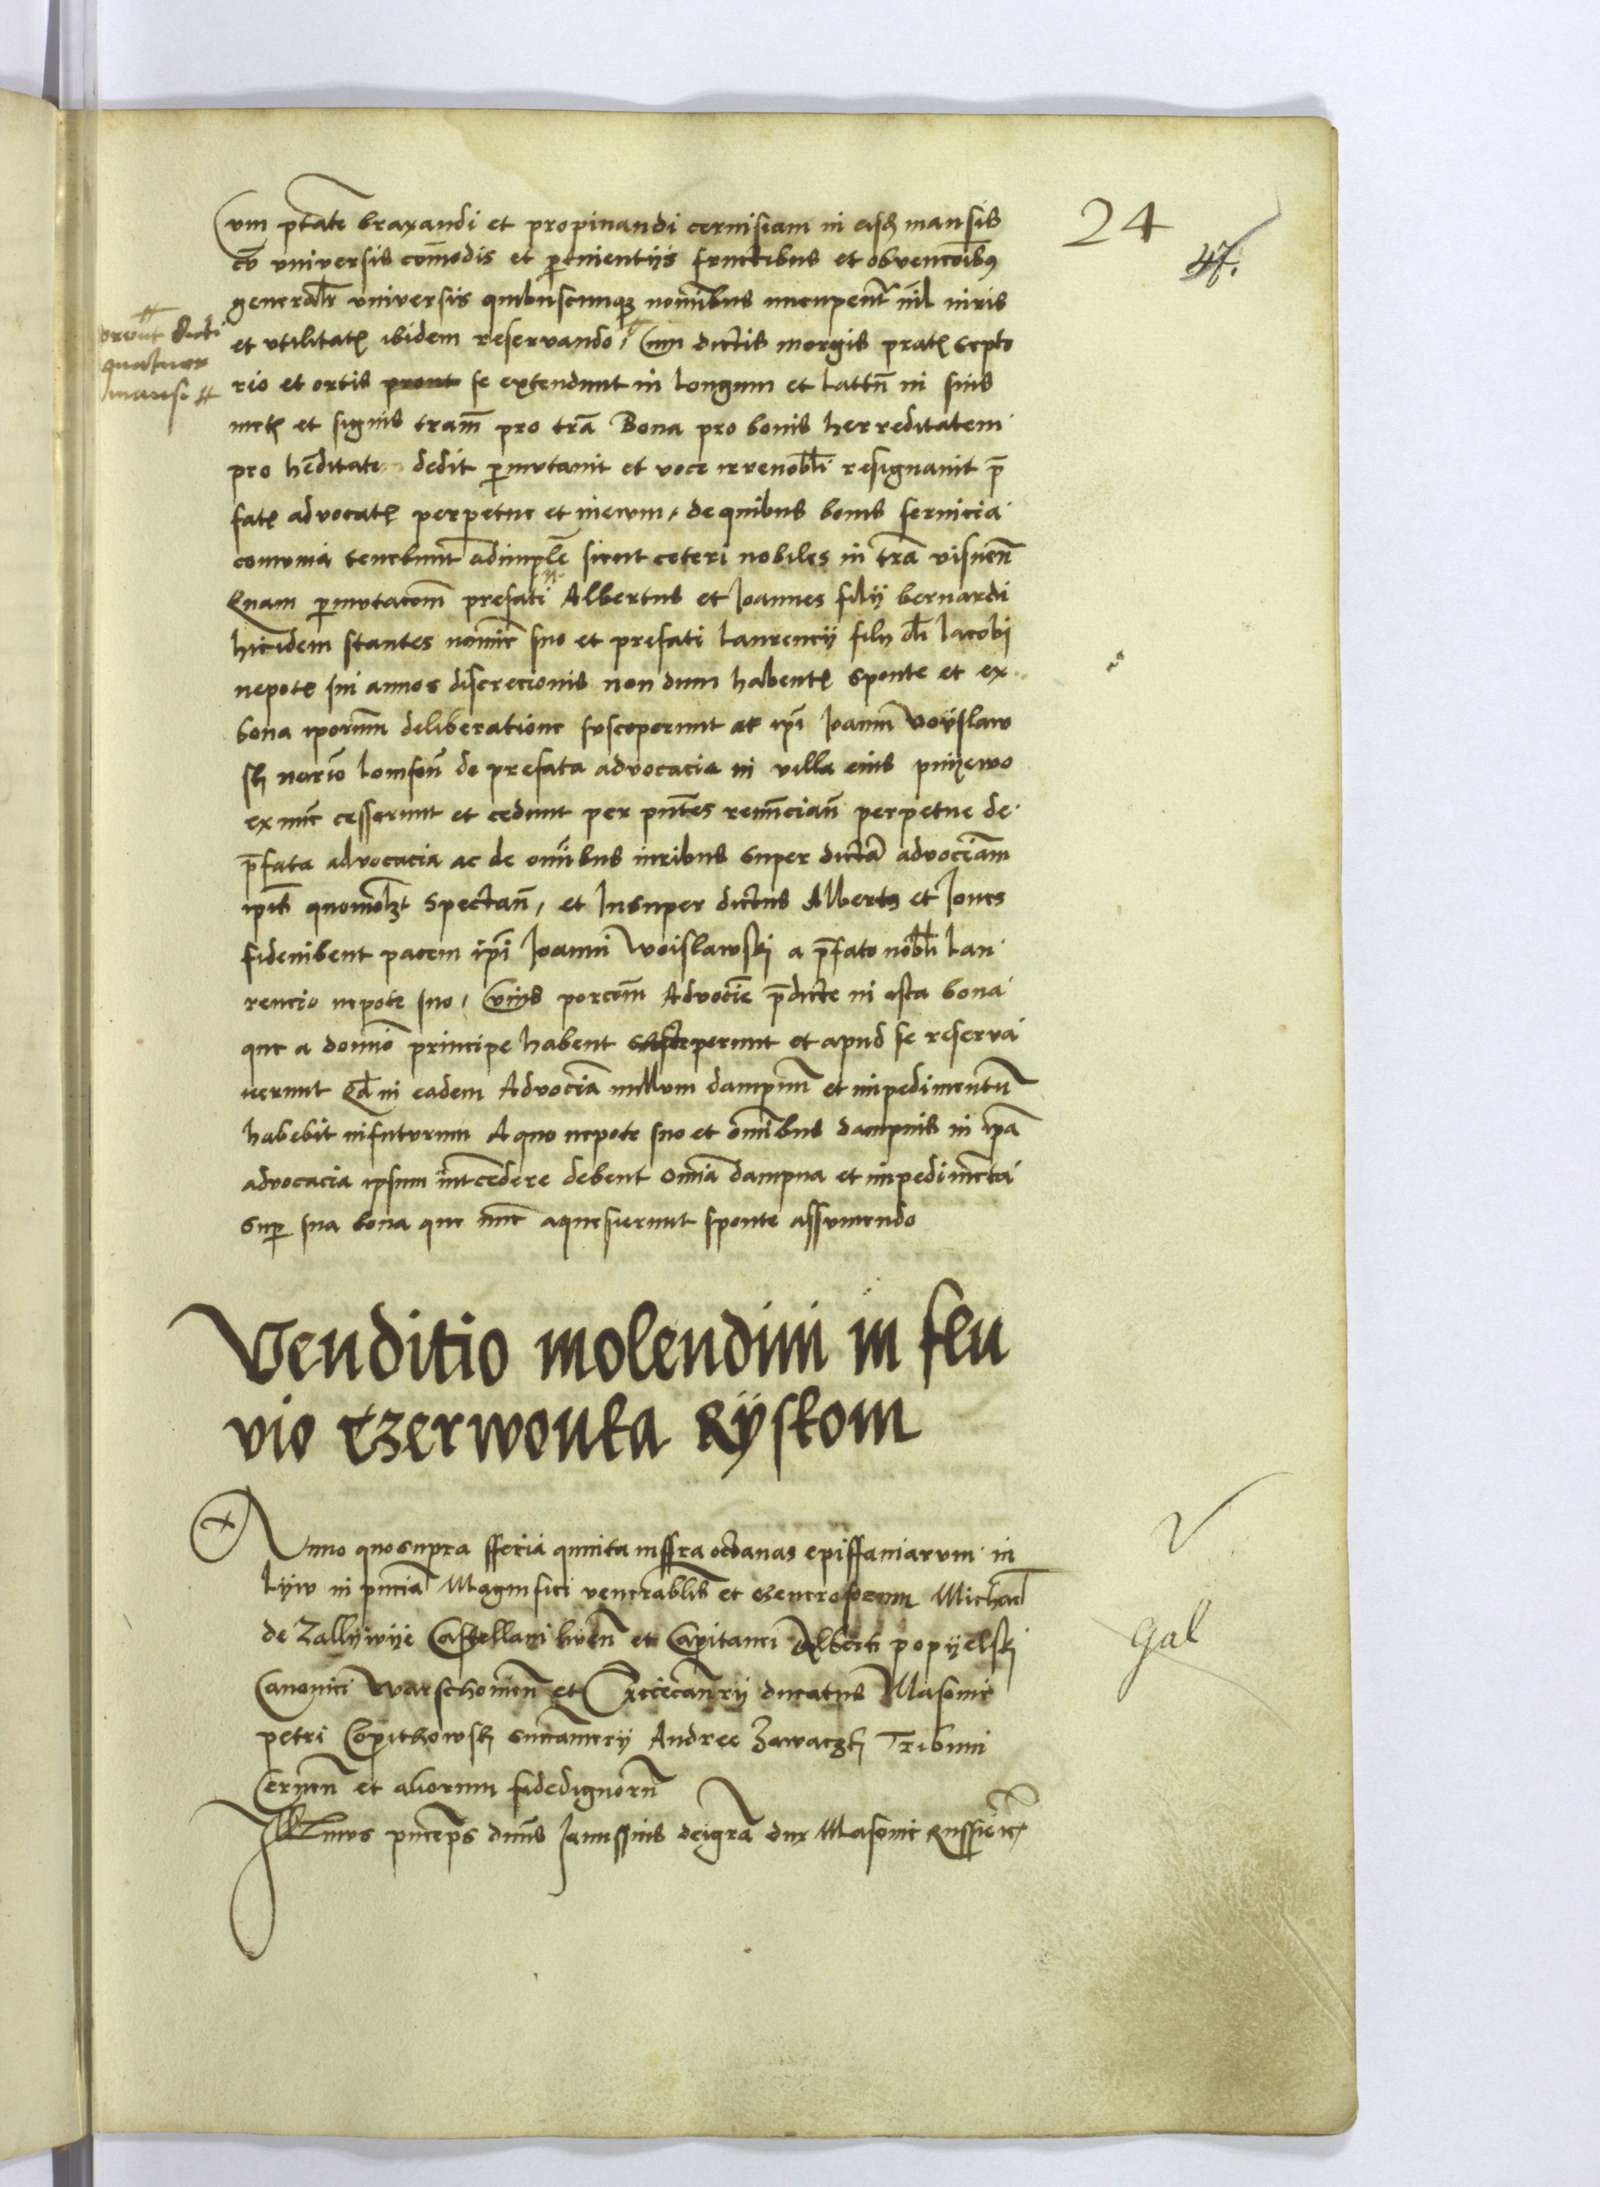 24
47.
Cum ptate braxandi et propinandi cervisiam in eisdem mansis
cu universis comodis et pertinentiis fructibus et obvencoibus
generalr universis quibuscunque nominibus nucupent nil iuris
et utilitatis ibidem reservando, Cum dictis morgis pratis septo
prout dicti
quatuor
mansi
rio et ortis prout se extendunt in longum et lattu in suis
metis et signis tram pro tra Bona pro bonis herreditatem
pro hereditate dedit permutavit et voce irrevobli resignavit pre
fatis advocatis perpetue et inevum, de quibus bonis servicia
comunia tenebunt adimplere sicut ceteri nobiles in tra visnen
Quam permutacom prefati Albertus et Joannes filii bernardi
hicidem stantes nomine suo et prefati laurencij filij dicti Jacobi
nepotis sui annos discrecionis non dum habentis sponte et ex
bona iporum deliberatione susceperunt ac ipi Joanni Voyslaw
sky notario lomsen de prefata advocacia in villa eius
ex nunc cesserunt et cedunt per pntes renunciando perpetue de
prefata advocacia ac de omnibus iuribus super dicta advociam
ipis quomolzt spectan, et Insuper dictus Albertus et Jones
fideiubent pacem ipi Joanni Woislawski a prefato nobli lau
rencio nepote suo, Cuius porcom Advocie predicte in ista bona
que a domino principe habent susceperunt et apud se reserva
verunt Qd in eadem Advocia nullum dampnum et impedimentu
habebit infuturum A quo nepote suo et omnibus dampnis in ipa
advocacia ipsum intercedere debent omnia dampna et impedimenta
super sua bona que nunc aquesierunt sponte assumendo
Venditio molendini in flu
vio Czerwonka Ryskom
Anno quosupra fferia quinta inffra octavas epiffaniarum in
Lyw in pncia Magnifici venerablis et Generosorum Michael
de Zallywye Castellani liven et Capitanei Alberti popyelski
Canonici Warschovien et ducatus Masovie
petri Copithowsky succamerij Andree Zawaczki Tribuni
Cernen et aliorum fidedignorum
Illmus princeps dnus Janussius dei gra dux Masovie Russie etc
V
Gal